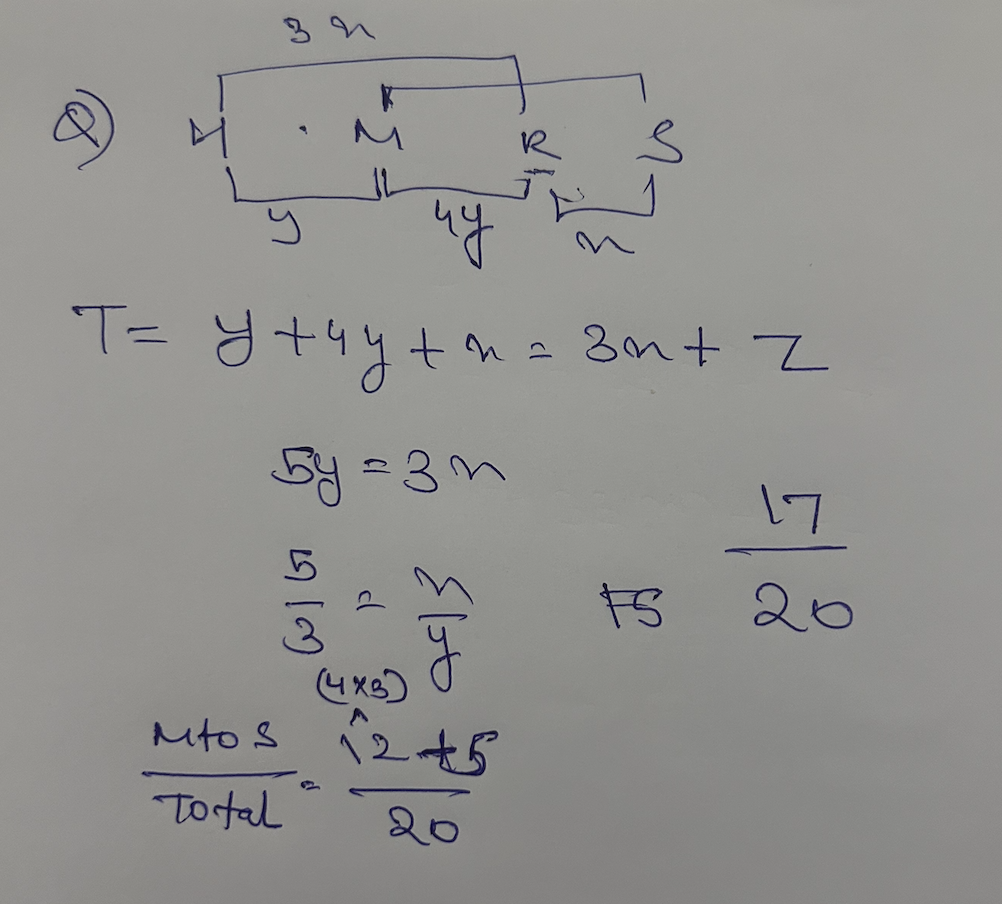 3x
Q) H . M R S
y 4y x
T = y + 4y + x = 3x + z
5y = 3x
5/3 = x/y
17/20
(4x3)
M to S / Total = 12 + 5 / 20